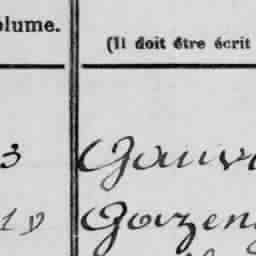 olume.
(Il doit être écrit
3 Gauv
19 Gozen